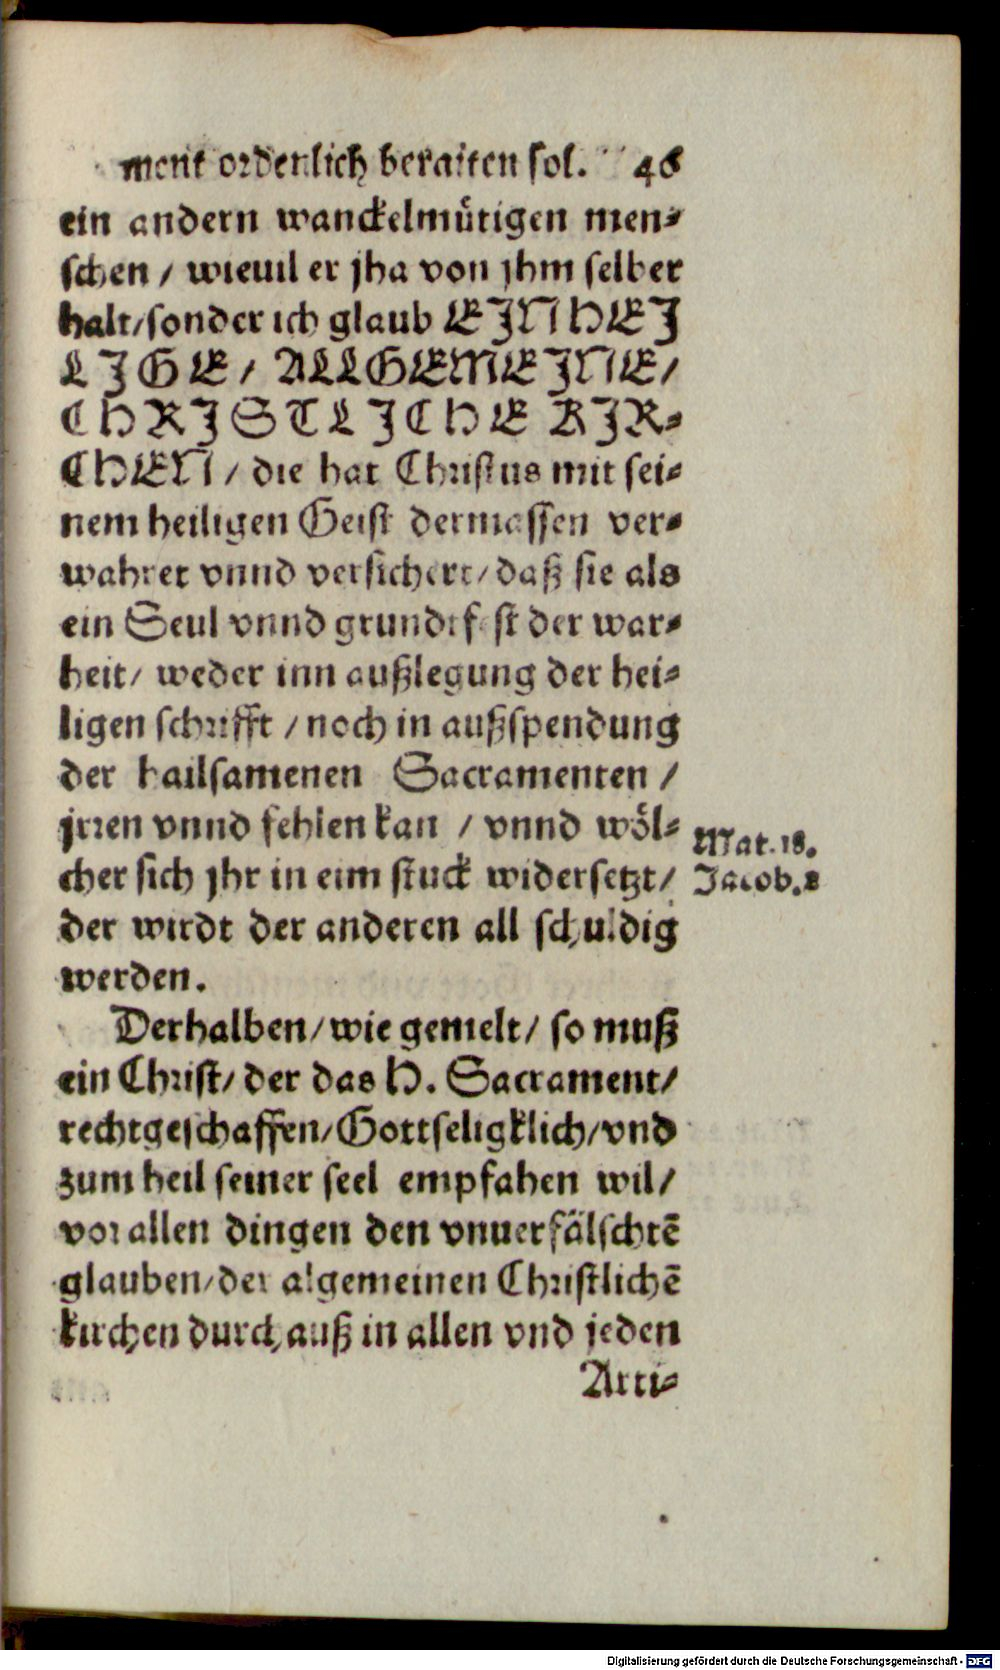 ment ordenlich beraiten sol. 46
ein andern wanckelmütigen men⸗
schen / wieuil er jha von jhm selber
halt/sonder ich glaub EINHEI
LIGE / ALLGEMEINE/
CHRISTLICHE KIR⸗
CHEN / die hat Christus mit sei⸗
nem heiligen Geist dermassen ver⸗
wahret vnnd versichert/daß sie als
ein Seul vnnd grundtfest der war⸗
heit/ weder inn außlegung der hei⸗
ligen schrifft / noch in außspendung
der hailsamenen Sacramenten /
jrren vnnd fehlen kan / vnnd wöl⸗
cher sich jhr in eim stuck widersetzt/
der wirdt der anderen all schuldig
werden.
Mat. 18.
Jacob. 2
Derhalben/wie gemelt/ so muß
ein Christ/ der das H. Sacrament/
rechtgeschaffen/Gottseligklich/vnd
zum heil seiner seel empfahen wil/
vor allen dingen den vnuerfälschtē
glauben/der algemeinen Christlichē
kirchen durchauß in allen vnd jeden
Arti⸗
Digitalisierung gefördert durch die Deutsche Forschungsgemeinschaft - DFG